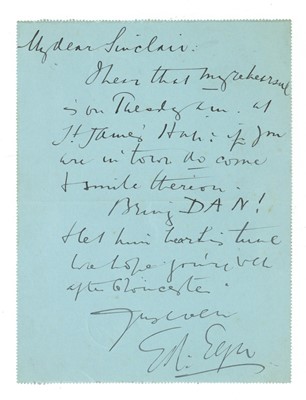 My dear Sinclair:
I hear that my rehearsal
is on Tuesday a.m. at
St. James's Hall: if you
are in town do come
& smile thereon.
Bring DAN!
& let him bark in tune
We hope you're well
after Gloucester
Yours ever
Ed. Elgar